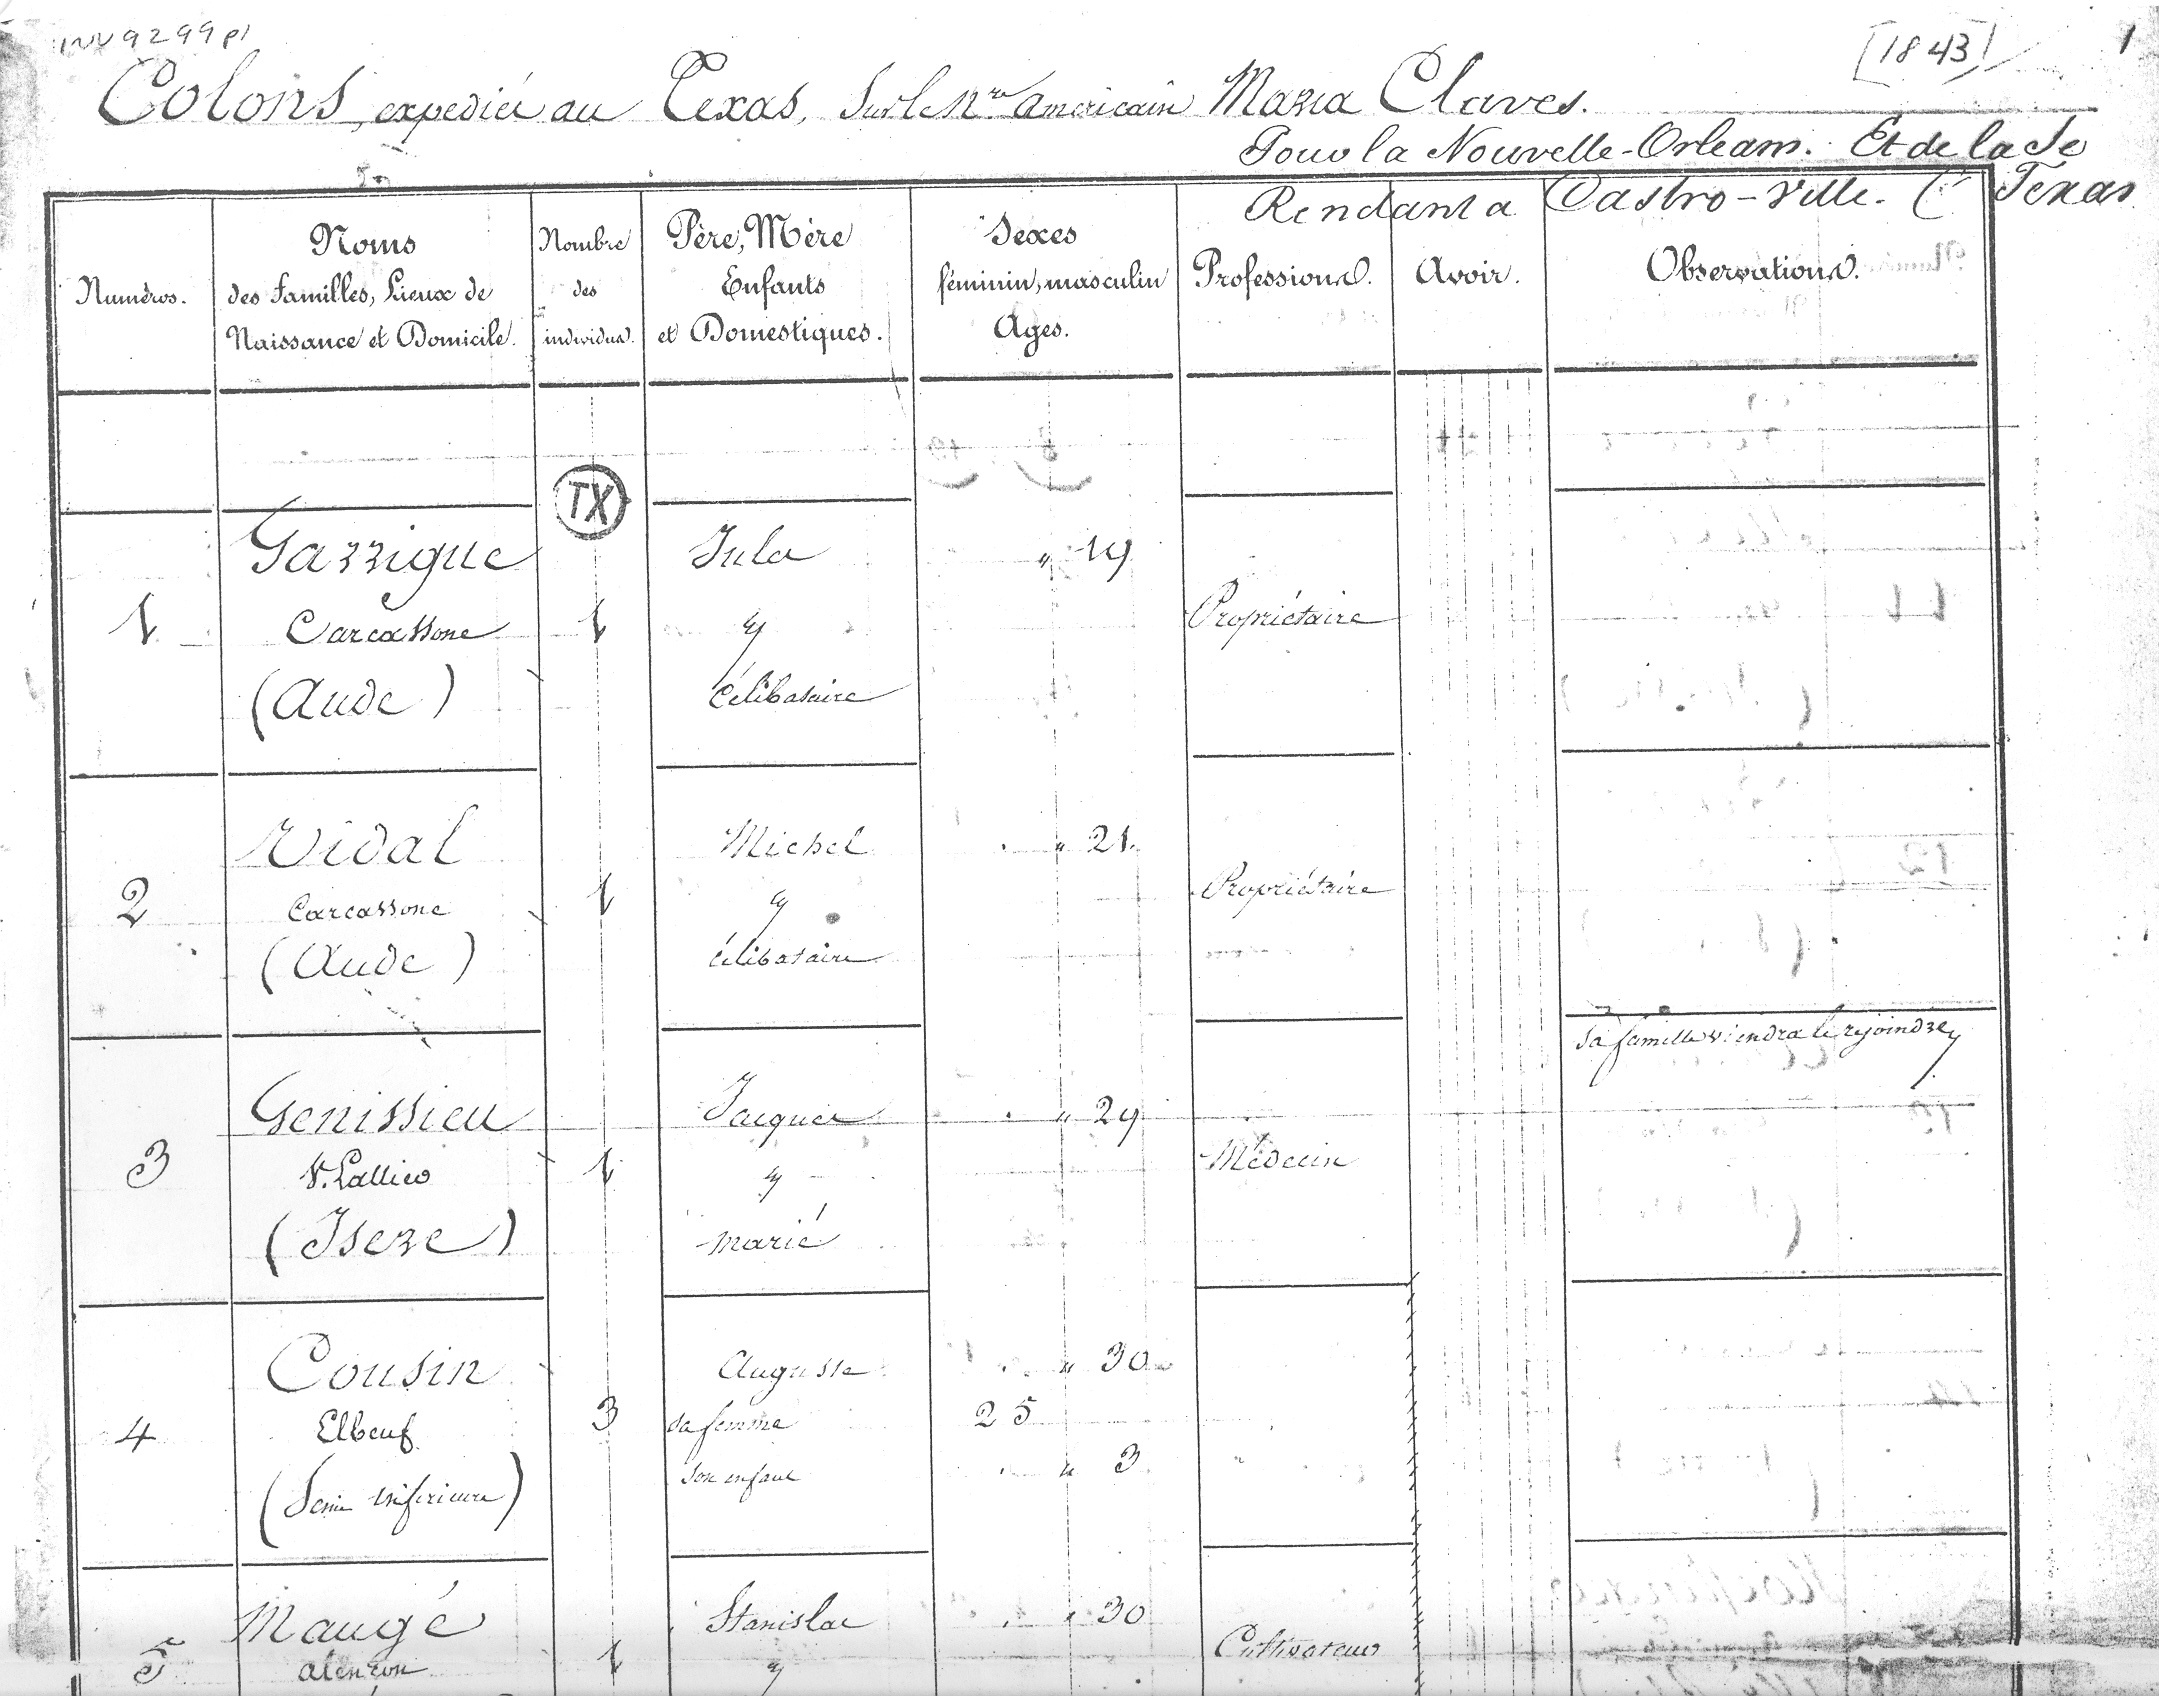 INV 9299 p1
[1843]
1
Colons, expediés au Texas, Sur le Nre americain Maria Claves.
Pour la Nouvelle-Orleans. Et de la Se
Rendant a Castro-Ville. (Texas
Numéros.
Noms
des Familles, Lieux de
Naissance et Domicile.
Nombre
des
individus.
Père, Mère
Enfants
et Domestiques.
Sexes
féminin, masculin
Ages.
Professions.
Avoir.
Observations.
TX
1
Garrigue
Carcassone
(Aude)
1
Jules
"
Célibataire
" 19
Propriétaire
2
Vidal
Carcassone
(Aude)
1
Michel
"
Célibataire
" 21.
Propriétaire
3
Genissieu
(Isere)
1
Jacques
"
marié
" 29
Médecin
Sa famille viendra le rejoindre
4
Cousin
Elbeuf
(Seine inferieure)
3
Auguste
sa femme
son enfant
" 30
25
" 3
5
Maugé
alençon
1
Stanislas
"
" 30
Cultivateur